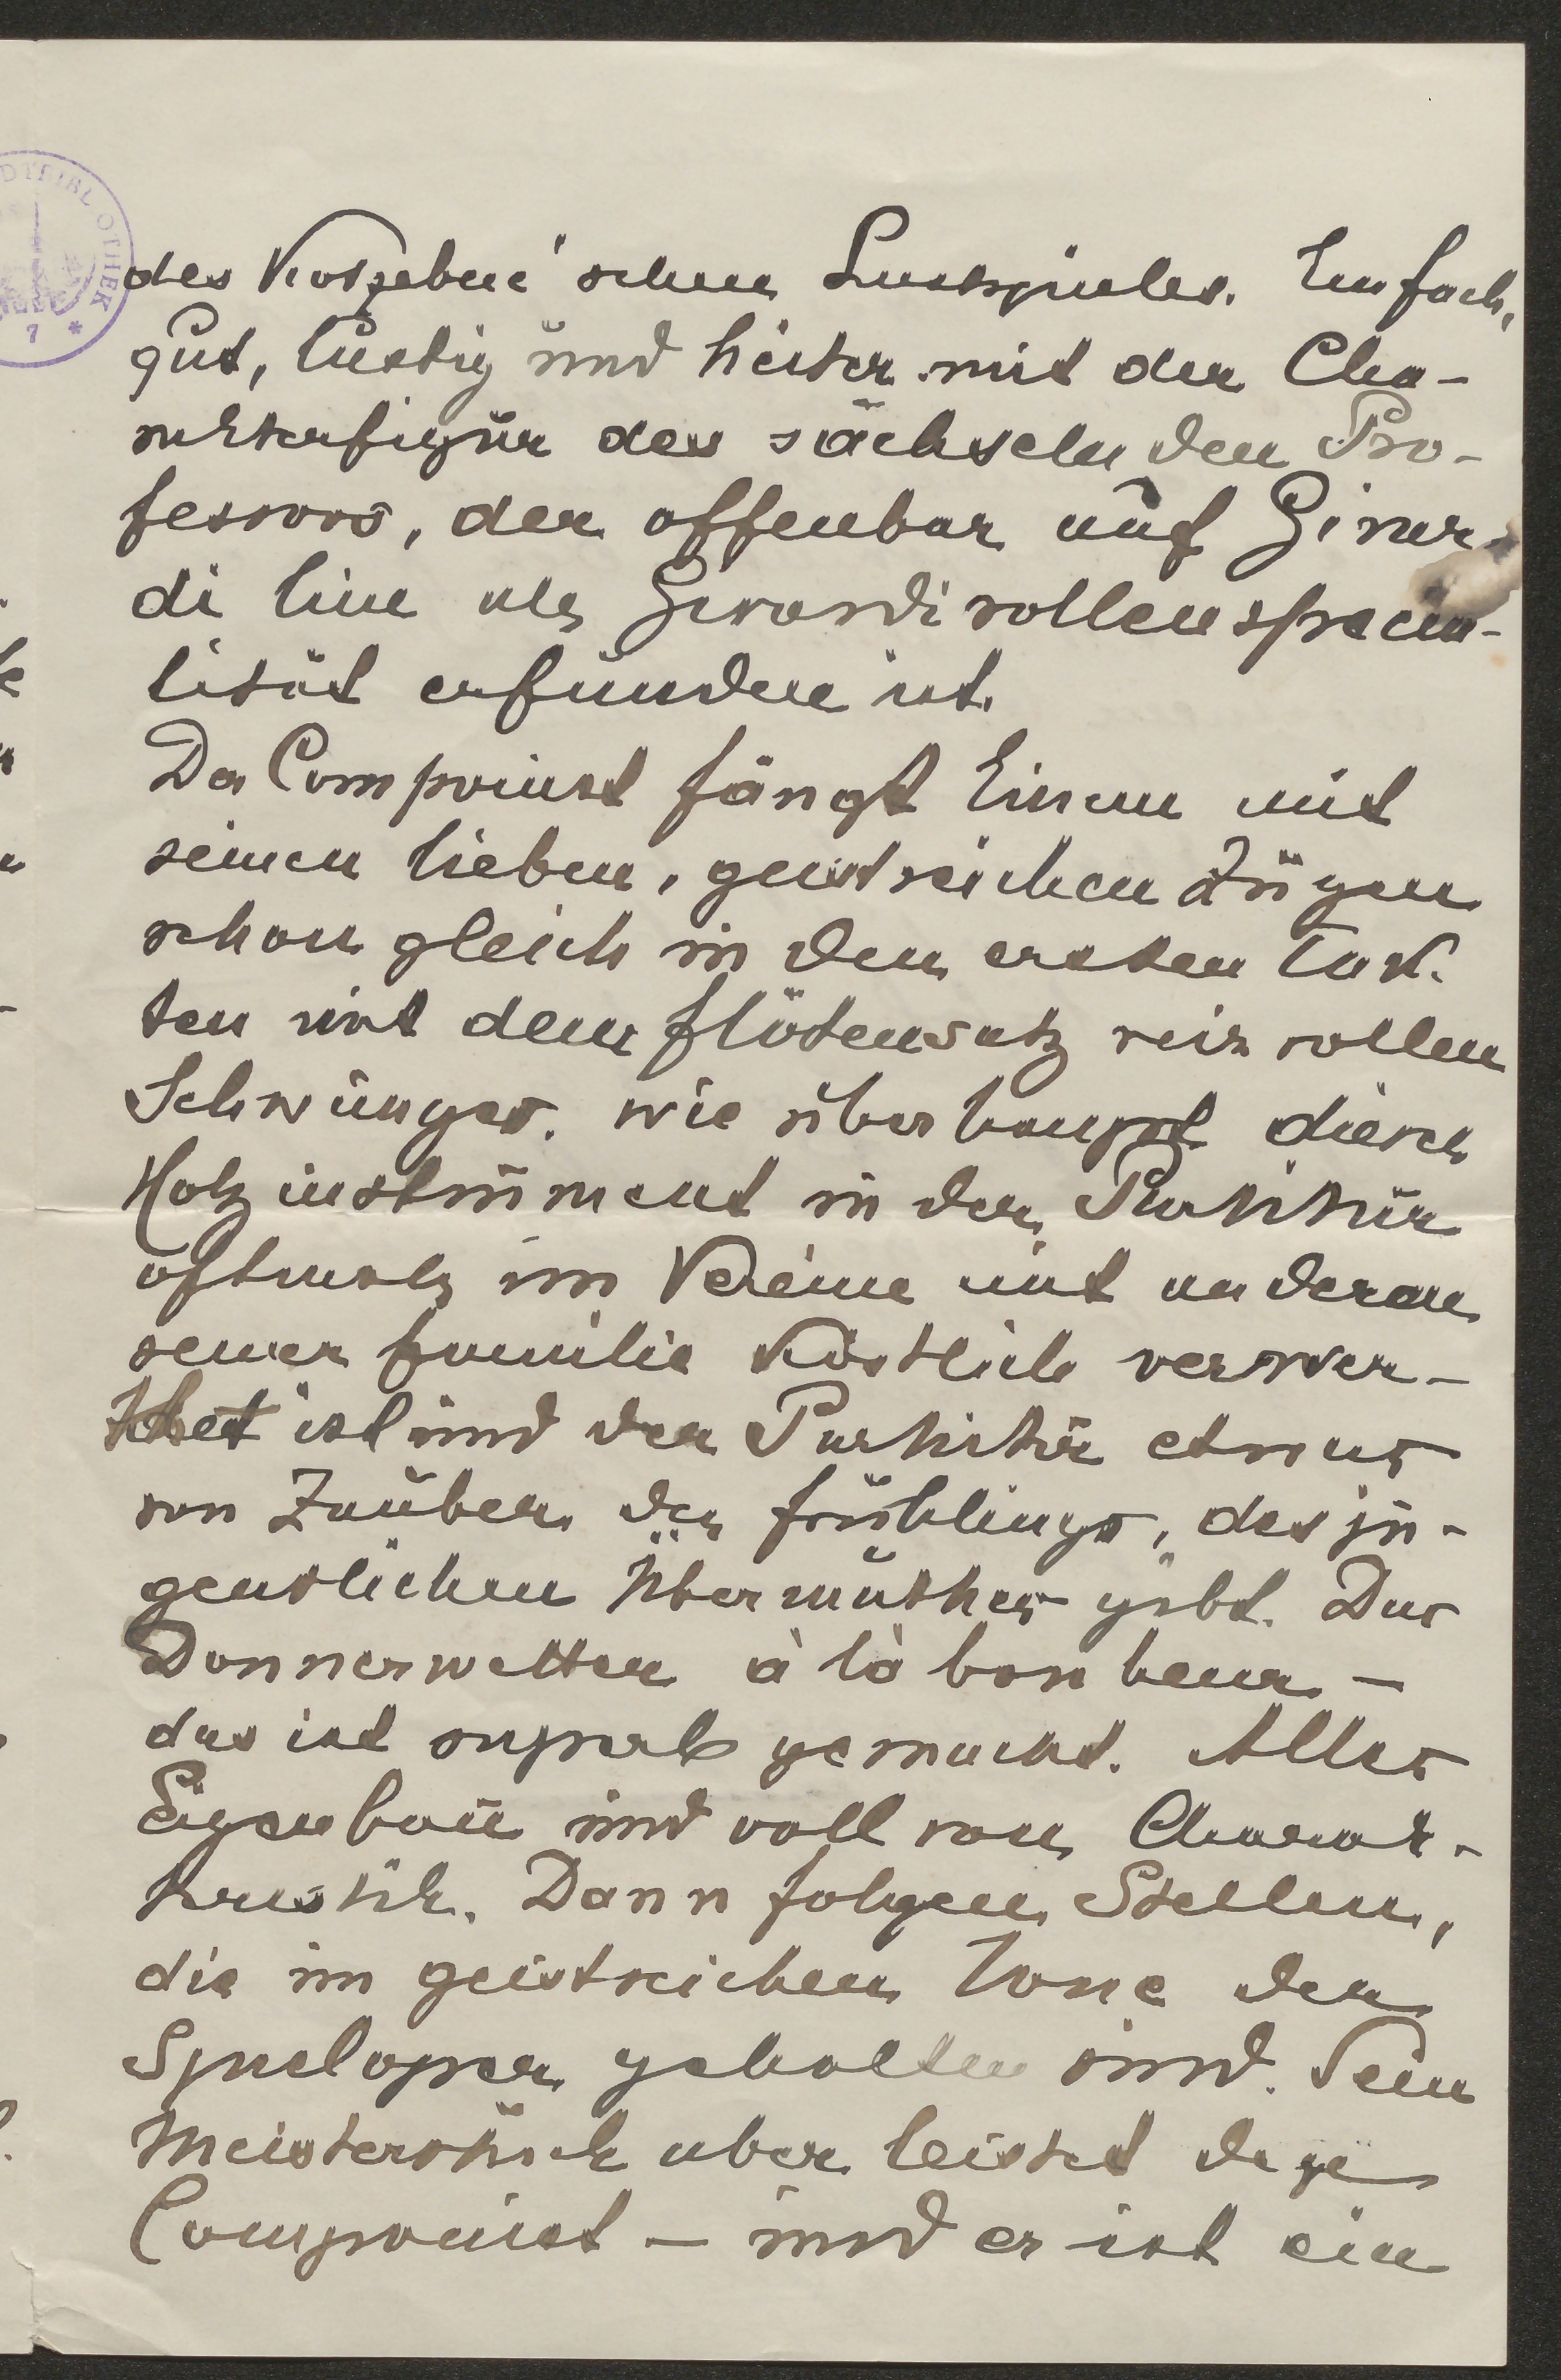 DTBIBLIOTHEK
7 *
des Kotzebue'schen Lustspieles. Einfach,
gut, lustig und heiter mit der Cha-
rakterfigur des sächselnden Pro-
fessors, der offenbar auf Girar-
di hin als Girardirollenspecia-
lität erfunden ist.
Der Componist fängt Einen mit
seinen lieben, geistreichen Zügen
schon gleich in den ersten Tak-
ten mit dem Flötensatz reizvollen
Schwunges. wie überhaupt dieses
Holzinstrument in der Partitur
oftmals im Vereine mit anderen
seiner Familie köstlich verwer-
thet ist und der Partitur etwas
von Zauber des Frühlings, des ju-
gendlichen Übermuthes gibt. Das
Donnerwetter à la bonheur –
das ist superb gemacht. Alles
Eigenbau und voll von Charak-
teristik. Dann folgen Stellen,
die im geistreichen Tone der
Spieloper gehalten sind. Sein
Meisterstück aber leistet der
Componist – und er ist ein